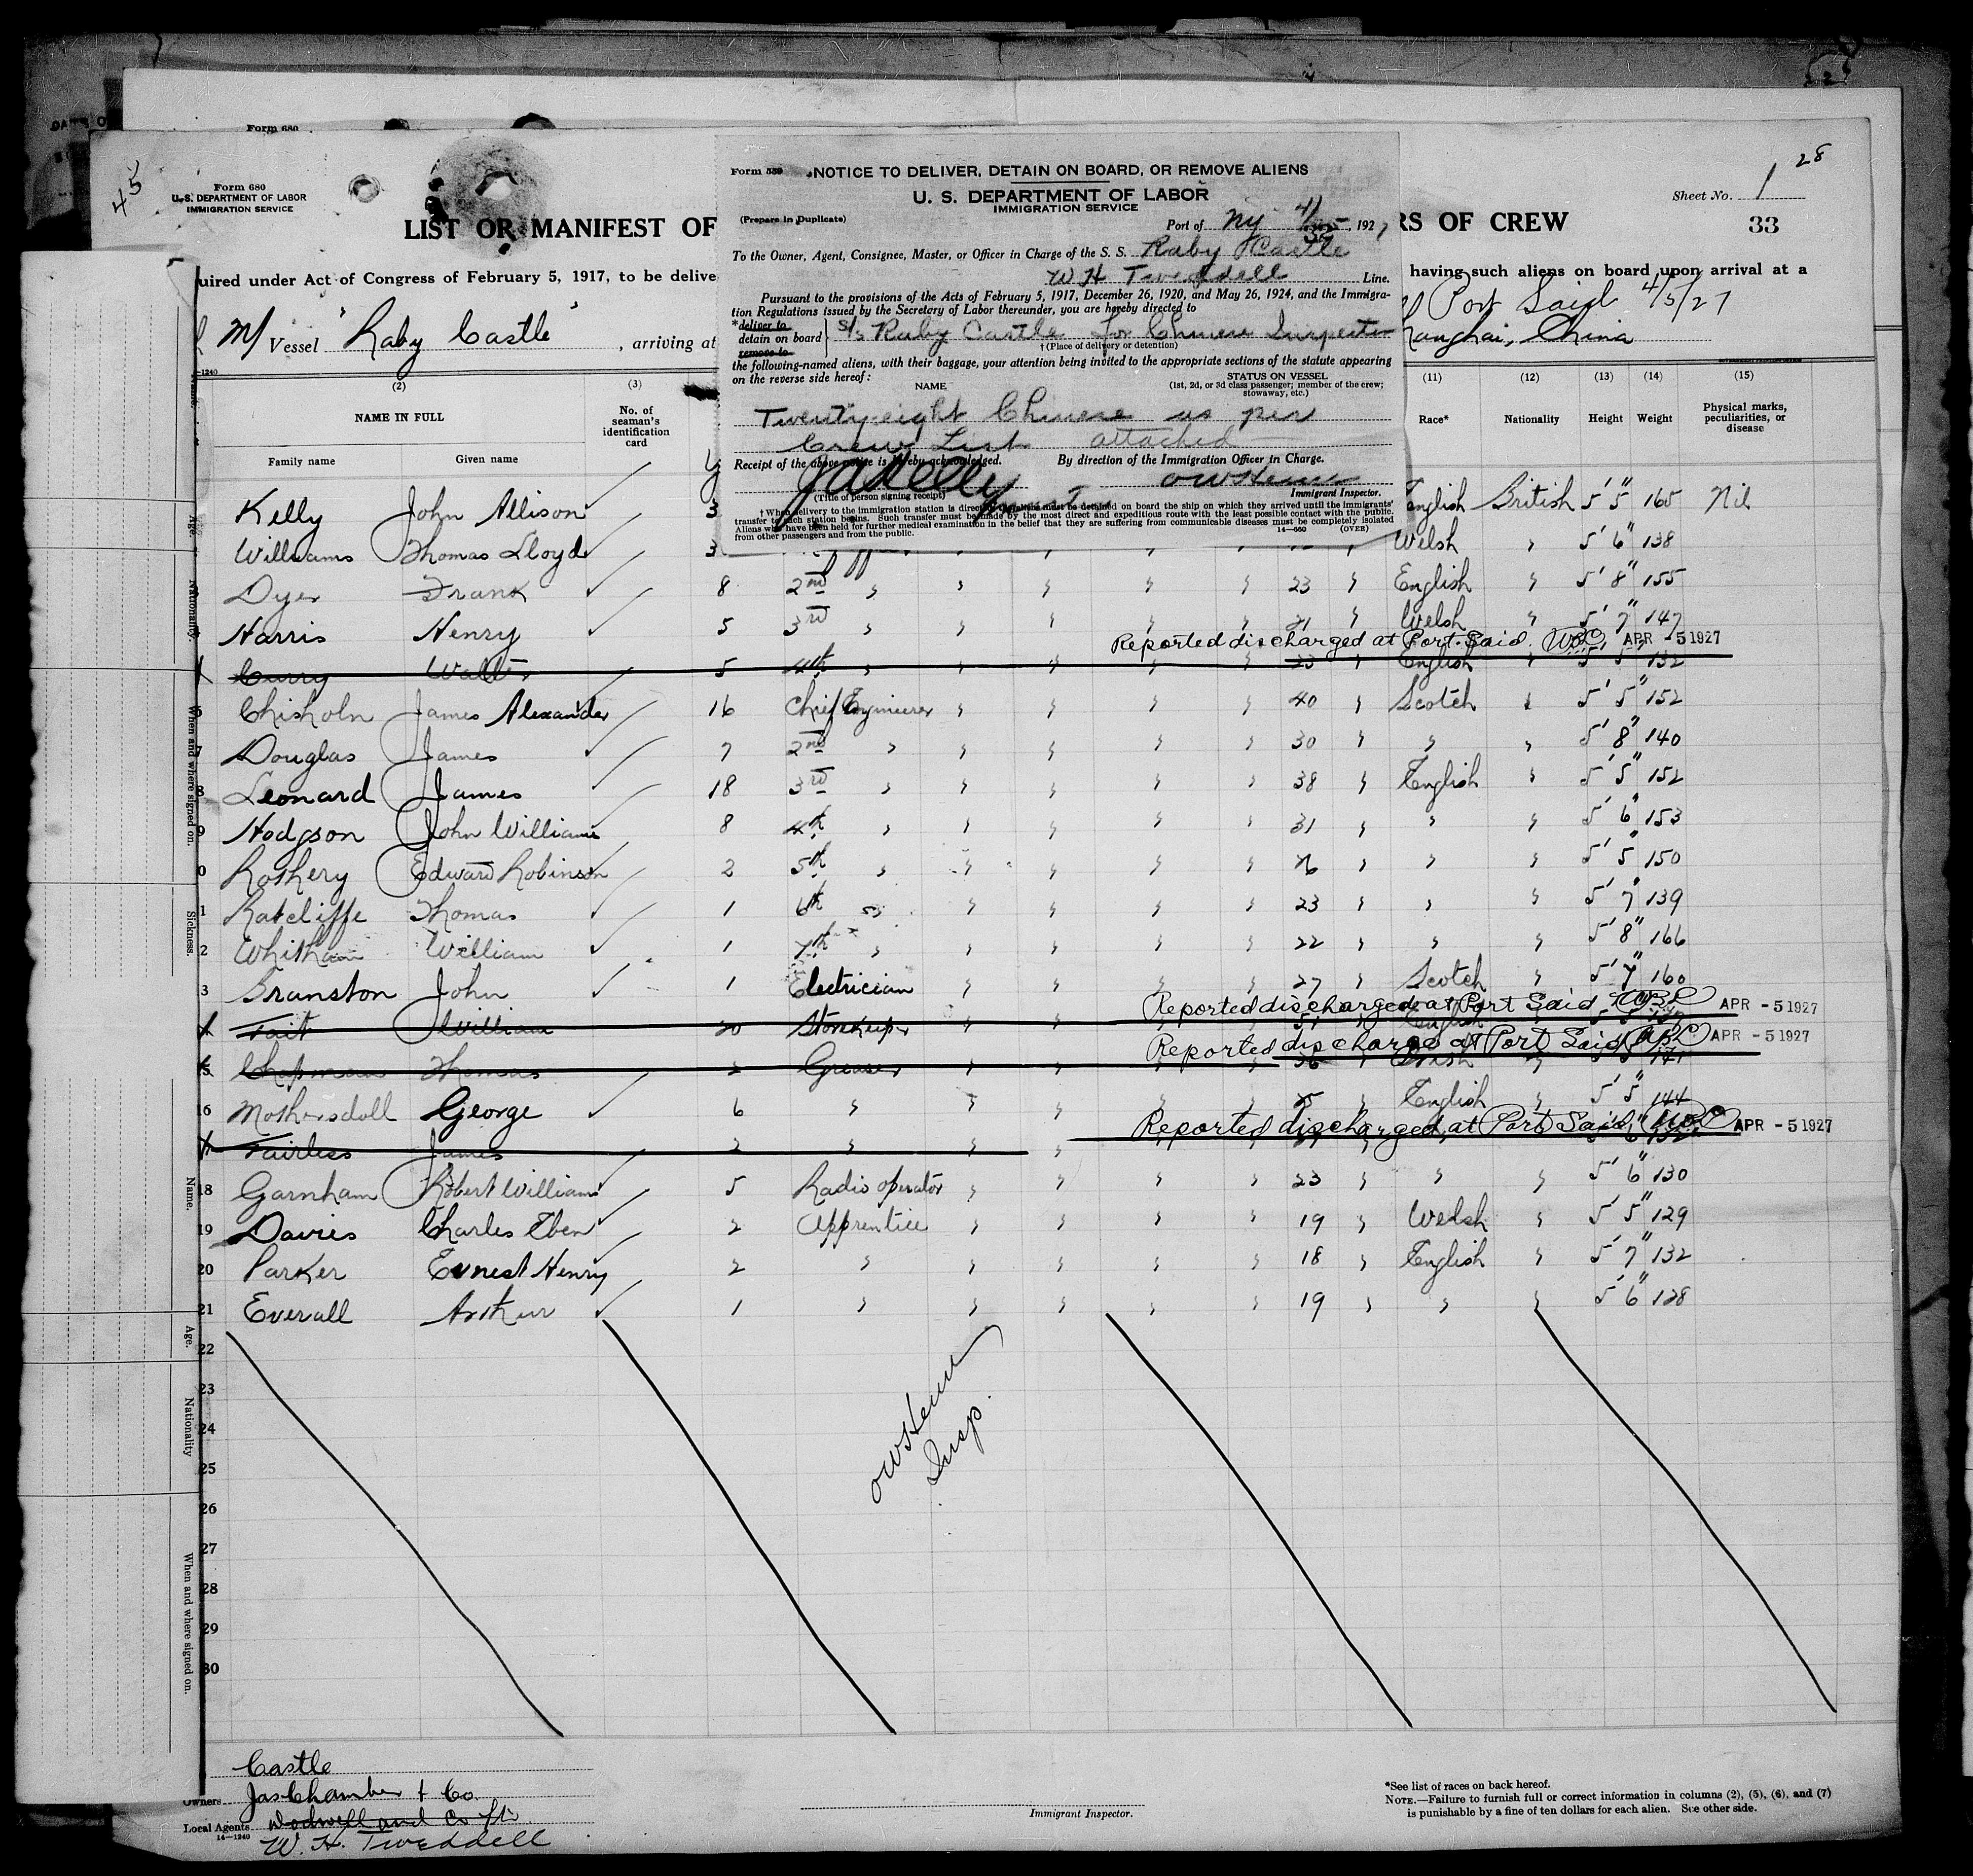 28
45
Form 680
Form 680
U. S. DEPARTMENT OF LABOR
IMMIGRATION SERVICE
Sheet No. 1
33
LIST OR MANIFEST OF
RS OF CREW
uired under Act of Congress of February 5, 1917, to be delive
having such aliens on board upon arrival at a
M/ Vessel "Raby Castle", arriving at
Port Said 4/5/27
hanghai, China
Form 559 NOTICE TO DELIVER, DETAIN ON BOARD, OR REMOVE ALIENS
U. S. DEPARTMENT OF LABOR
IMMIGRATION SERVICE
(Prepare in Duplicate)
Port of NY 4/ , 1927
To the Owner, Agent, Consignee, Master, or Officer in Charge of the S. S. Raby Castle
W H Tweddell Line.
Pursuant to the provisions of the Acts of February 5, 1917, December 26, 1920, and May 26, 1924, and the Immigra-
tion Regulations issued by the Secretary of Labor thereunder, you are hereby directed to
*deliver to
detain on board S/S Raby Castle for Chinese Inspector
remove to
†(Place of delivery or detention)
the following-named aliens, with their baggage, your attention being invited to the appropriate sections of the statute appearing
on the reverse side hereof:
NAME
STATUS ON VESSEL
(1st, 2d, or 3d class passenger; member of the crew;
stowaway, etc.)
Twenty eight Chinese as per
Crew List attached
Receipt of the above notice is hereby acknowledged. By direction of the Immigration Officer in Charge.
JA Kelly
(Title of person signing receipt)
Immigrant Inspector.
†When delivery to the immigration station is directed, aliens must be detained on board the ship on which they arrived until the immigrants'
transfer to such station begins. Such transfer must be made by the most direct and expeditious route with the least possible contact with the public.
Aliens who have been held for further medical examination in the belief that they are suffering from communicable diseases must be completely isolated
from other passengers and from the public.
14—660 (OVER)
(2) (3) (11) (12) (13) (14) (15)
NAME IN FULL
No. of seaman's identification card
Race* Nationality Height Weight Physical marks, peculiarities, or disease
Family name Given name
Kelly John Allison 3 English British 5' 5" 165 Nil
Williams Thomas Lloyd 3 Welsh " 5' 6" 138
Dyer Frank 8 2nd " " " " " 23 " English " 5' 8" 155
Harris Henry 5 3rd " " " " " 21 " Welsh " 5' 7" 147
Reported discharged at Port Said. APR -5 1927
Curry Walter 5 4th " " " " " 23 " English " 5' 5" 132
Chisholn James Alexander 16 Chief Engineer " " " " 40 " Scotch " 5' 5" 152
7 Douglas James 7 2nd " " " " " 30 " " " 5' 8" 140
8 Leonard James 18 3rd " " " " " 38 " English " 5' 5" 152
9 Hodgson John William 8 4th " " " " " 31 " " " 5' 6" 153
0 Roshery Edward Robinson 2 5th " " " " " " " " 5' 5" 150
1 Ratcliffe Thomas 1 6th " " " " " 23 " " " 5' 7" 139
2 Whitham William 1 7th " " " " " 22 " " " 5' 8" 166
3 Branston John 1 Electrician " " " " 27 " Scotch " 5' 7" 160
Reported discharged at Port Said APR -5 1927
Tait William 20 Storekeeper " " " " 51 " English
Reported discharge at Port Said APR -5 1927
5 Chapman Thomas 2 Greaser " " " " 36 " Irish " 171
16 Mothersdoll George 6 " " " " " " English " 5' 5" 144
Reported discharged at Port Said APR -5 1927
Fairless James 2 " " "
18 Garnham Robert William 5 Radio operator " " " " 23 " " " 5' 6" 130
19 Davies Charles Eben 2 Apprentice " " " " 19 " Welsh " 5' 5" 129
20 Parker Ernest Henry 2 " " " " " 18 " English " 5' 7" 132
21 Everall Arthur 1 " " " " " 19 " " " 5' 6" 128
22
23
24
25
26
27
28
29
30
Insp.
Age.
Nationality.
When and where signed on.
Sickness.
Name.
Age.
Nationality
When and where signed on.
Castle
Owners Jas Chambers & Co.
Local Agents Dodwell and Co Ltd
14—1240
W. H. Tweddell
Immigrant Inspector.
*See list of races on back hereof.
NOTE.—Failure to furnish full or correct information in columns (2), (5), (6), and (7)
is punishable by a fine of ten dollars for each alien. See other side.